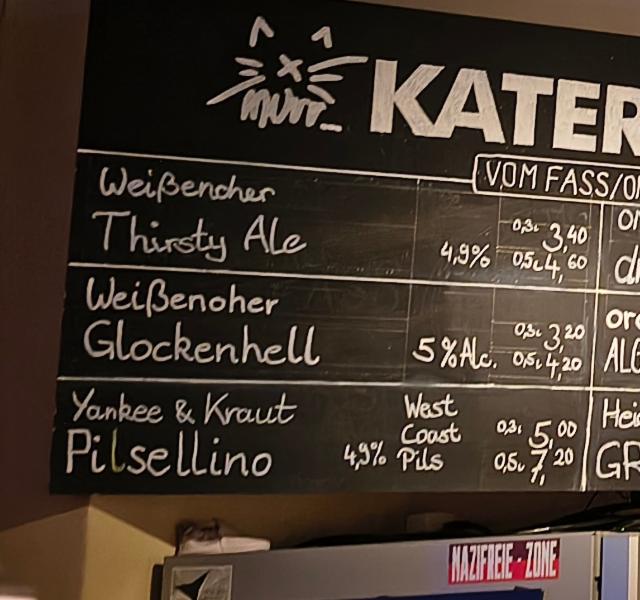 murr_ KATER
VOM FASS/O
Weißenoher
Thirsty Ale 4,9% 0,3L 3,40
0,5L 4,60
Weißenoher
Glockenhell 5%Alc. 0,3L 3,20
0,5L 4,20
Yankee & Kraut
Pilsellino 4,9% West
Coast
Pils 0,3L 5,00
0,5L 7,20
or
d
or
ALC
Hei
GR
NAZIFREIE - ZONE